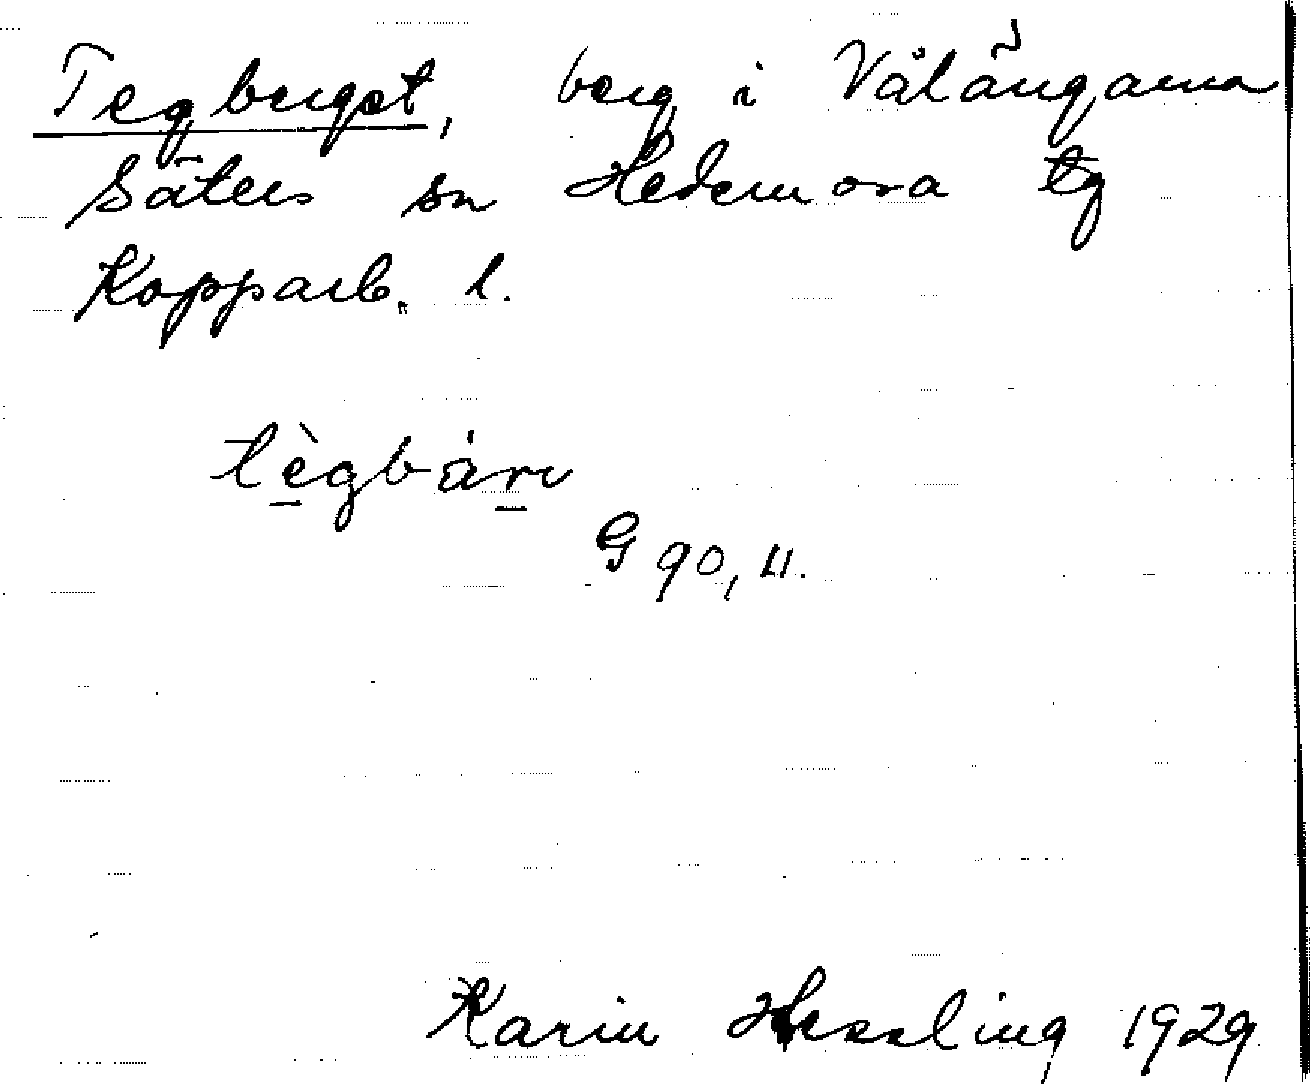 Tegberget, berg i Vålängarna
Säters sn Hedemora tg
Kopparb. l.
tègbárv
G 90, 11.
Karin Hessling 1929